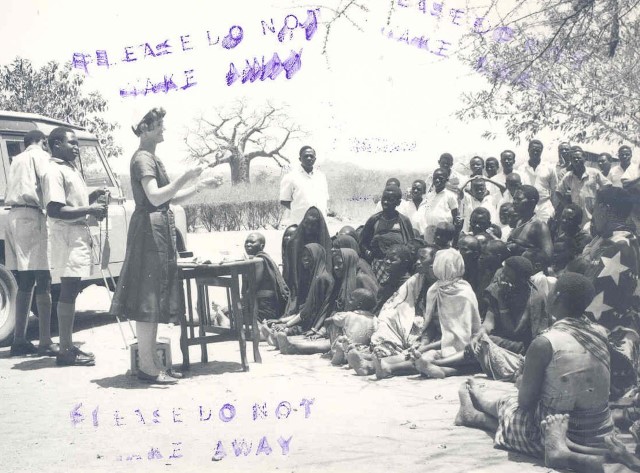 PLEASE DO NOT
TAKE AWAY
PLEASE DO NOT
TAKE AWAY
PLEASE DO NOT
TAKE AWAY